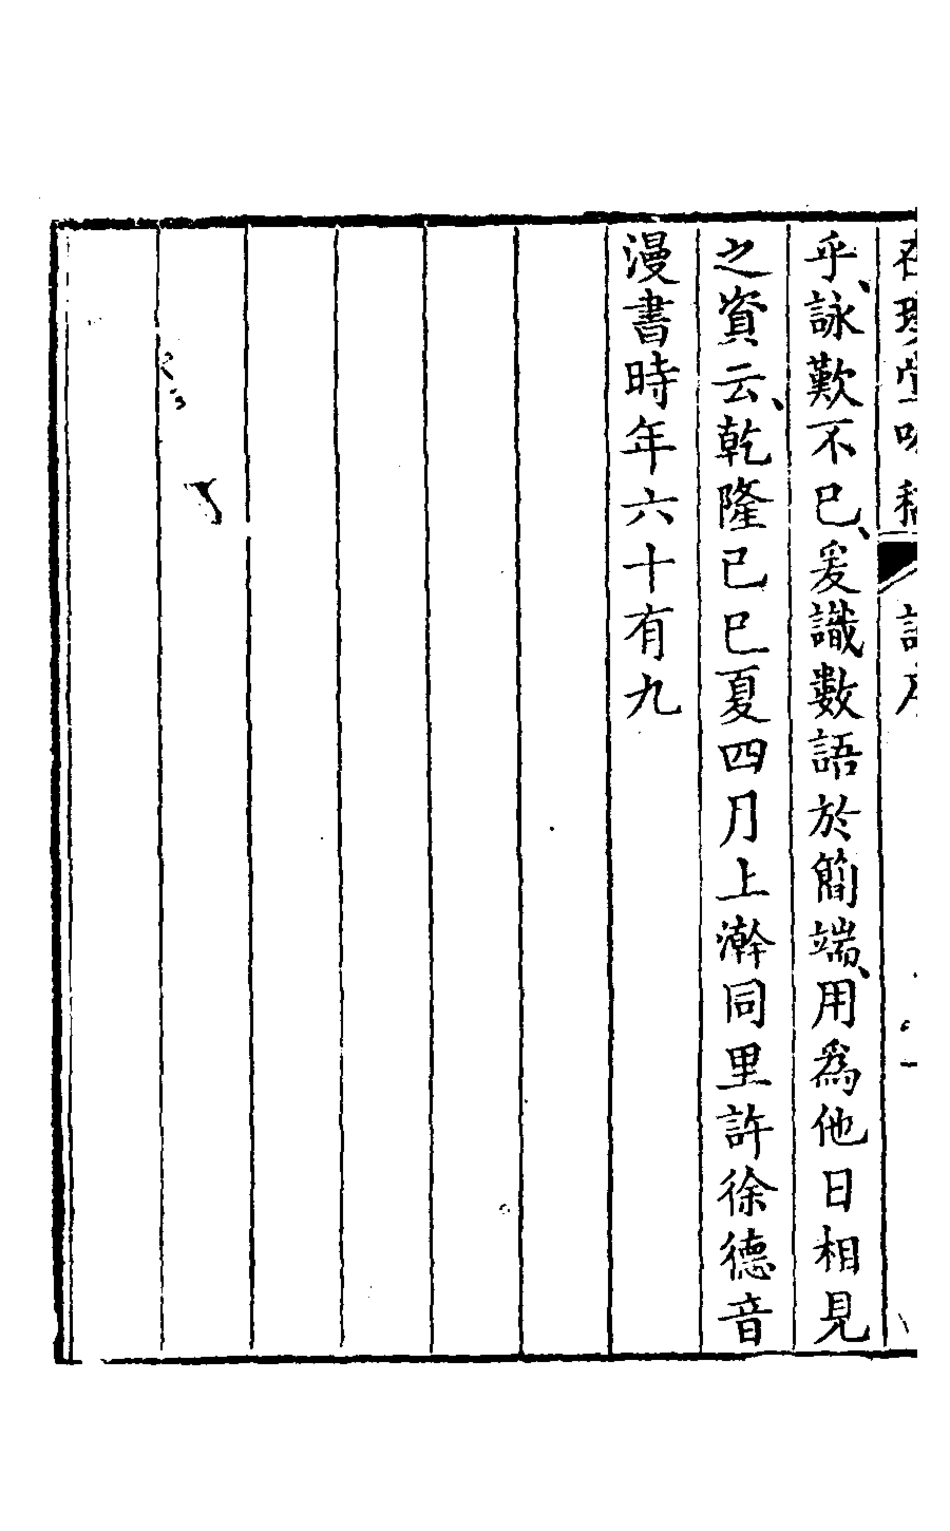 乎、詠歎不已、爰識數語於簡端、用為他日相見
之資云、乾隆己巳夏四月上澣同里許徐德音
漫書時年六十有九